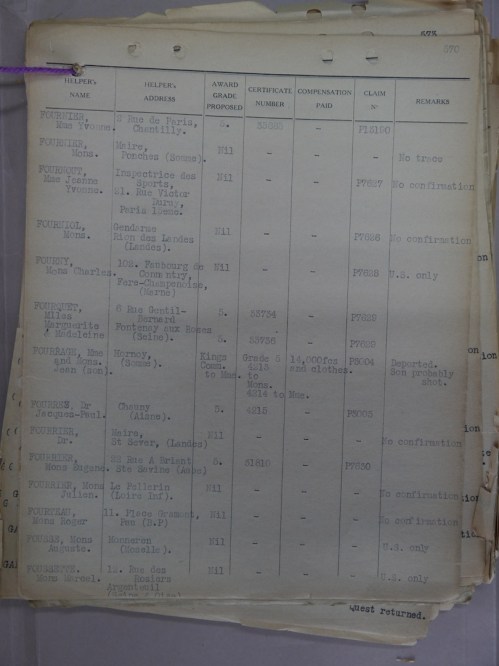 675
270
HELPER'S NAME HELPER'S ADDRESS AWARD GRADE PROPOSED CERTIFICATE NUMBER COMPENSATION PAID CLAIM Nº REMARKS
FOURNIER, 2 Rue de Paris,
Mme Yvonne. Chantilly. 5. - P15190
FOURNIER, Maire,
Mons. Ponches (Somme). Nil - - - No trace
Inspectrice des
Mme Jeanne Sports, Nil - - P7827 No confirmation
Yvonne. 21. Rue Victor
Duruy,
Paris 15eme.
FOURNIOL, Gendarme Nil
Mons. Rion des Landes - - No confirmation
(Landes).
FOURNY, 102. Faubourg de Nil
Mons Charles. - - P7828 U.S. only
Fere-Champenoise,
(Marne)
FOURQUET, 6 Rue Gentil- 5. 53734 - P7829
Mlles Bernard
Marguerite Fontenay aux Roses
& Madeleine (Seine). 5. 53736 - P7829
FOURRAGE, Mme Hornoy, Kings Grade 5 14,000fcs P3004 Deported.
and Mons. (Somme). Comm. 4213 and clothes. Son probably
Jean (son). to Mme. to shot.
Mons.
6214 to Mme.
Dr Chauny 5. 4215 -
Jacques-Paul. (Aisne).
FOURRIER, Maire, Nil
Dr. St Sever, (Landes) - - - No confirmation
FOURRIER, 22 Rue A Briant 5. -
Mons Eugene. Ste Savine (Aube)
FOURRIER, Mons Le Pellerin Nil
Julien. (Loire Inf). - - - No confirmation
11. Place Gramont, Nil
Mons Roger Pau (B.P) - - - No confirmation
Mons Nil
Auguste. (Moselle). - - - U.S. only
12. Rue des Nil
Mons Marcel. Rosiers - - - U.S. only
Argenteuil
quest returned.